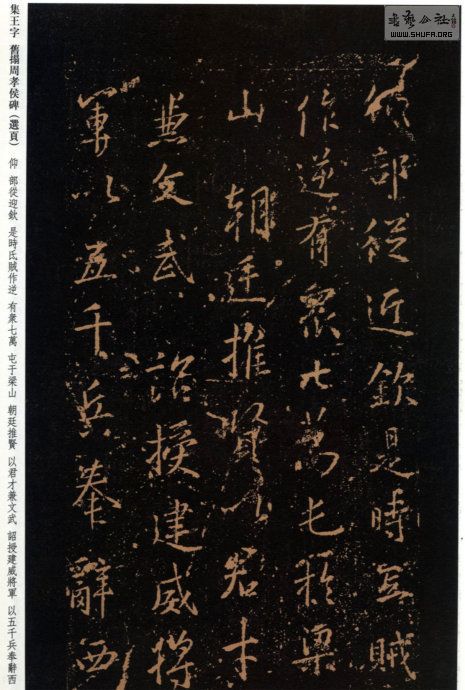 集王字 舊搨周孝侯碑(選頁) 仰 部從迎欽 是時氐賊作逆 有衆七萬 屯于梁山 朝廷推賢 以君才兼文武 詔授建威將軍 以五千兵奉辭西
WWW.SHUFA.ORG
仰部從迎欽是時氐賊
作逆有衆七萬屯於梁
山 朝廷推賢以君才
兼文武 詔授建威將
軍以五千兵奉辭西